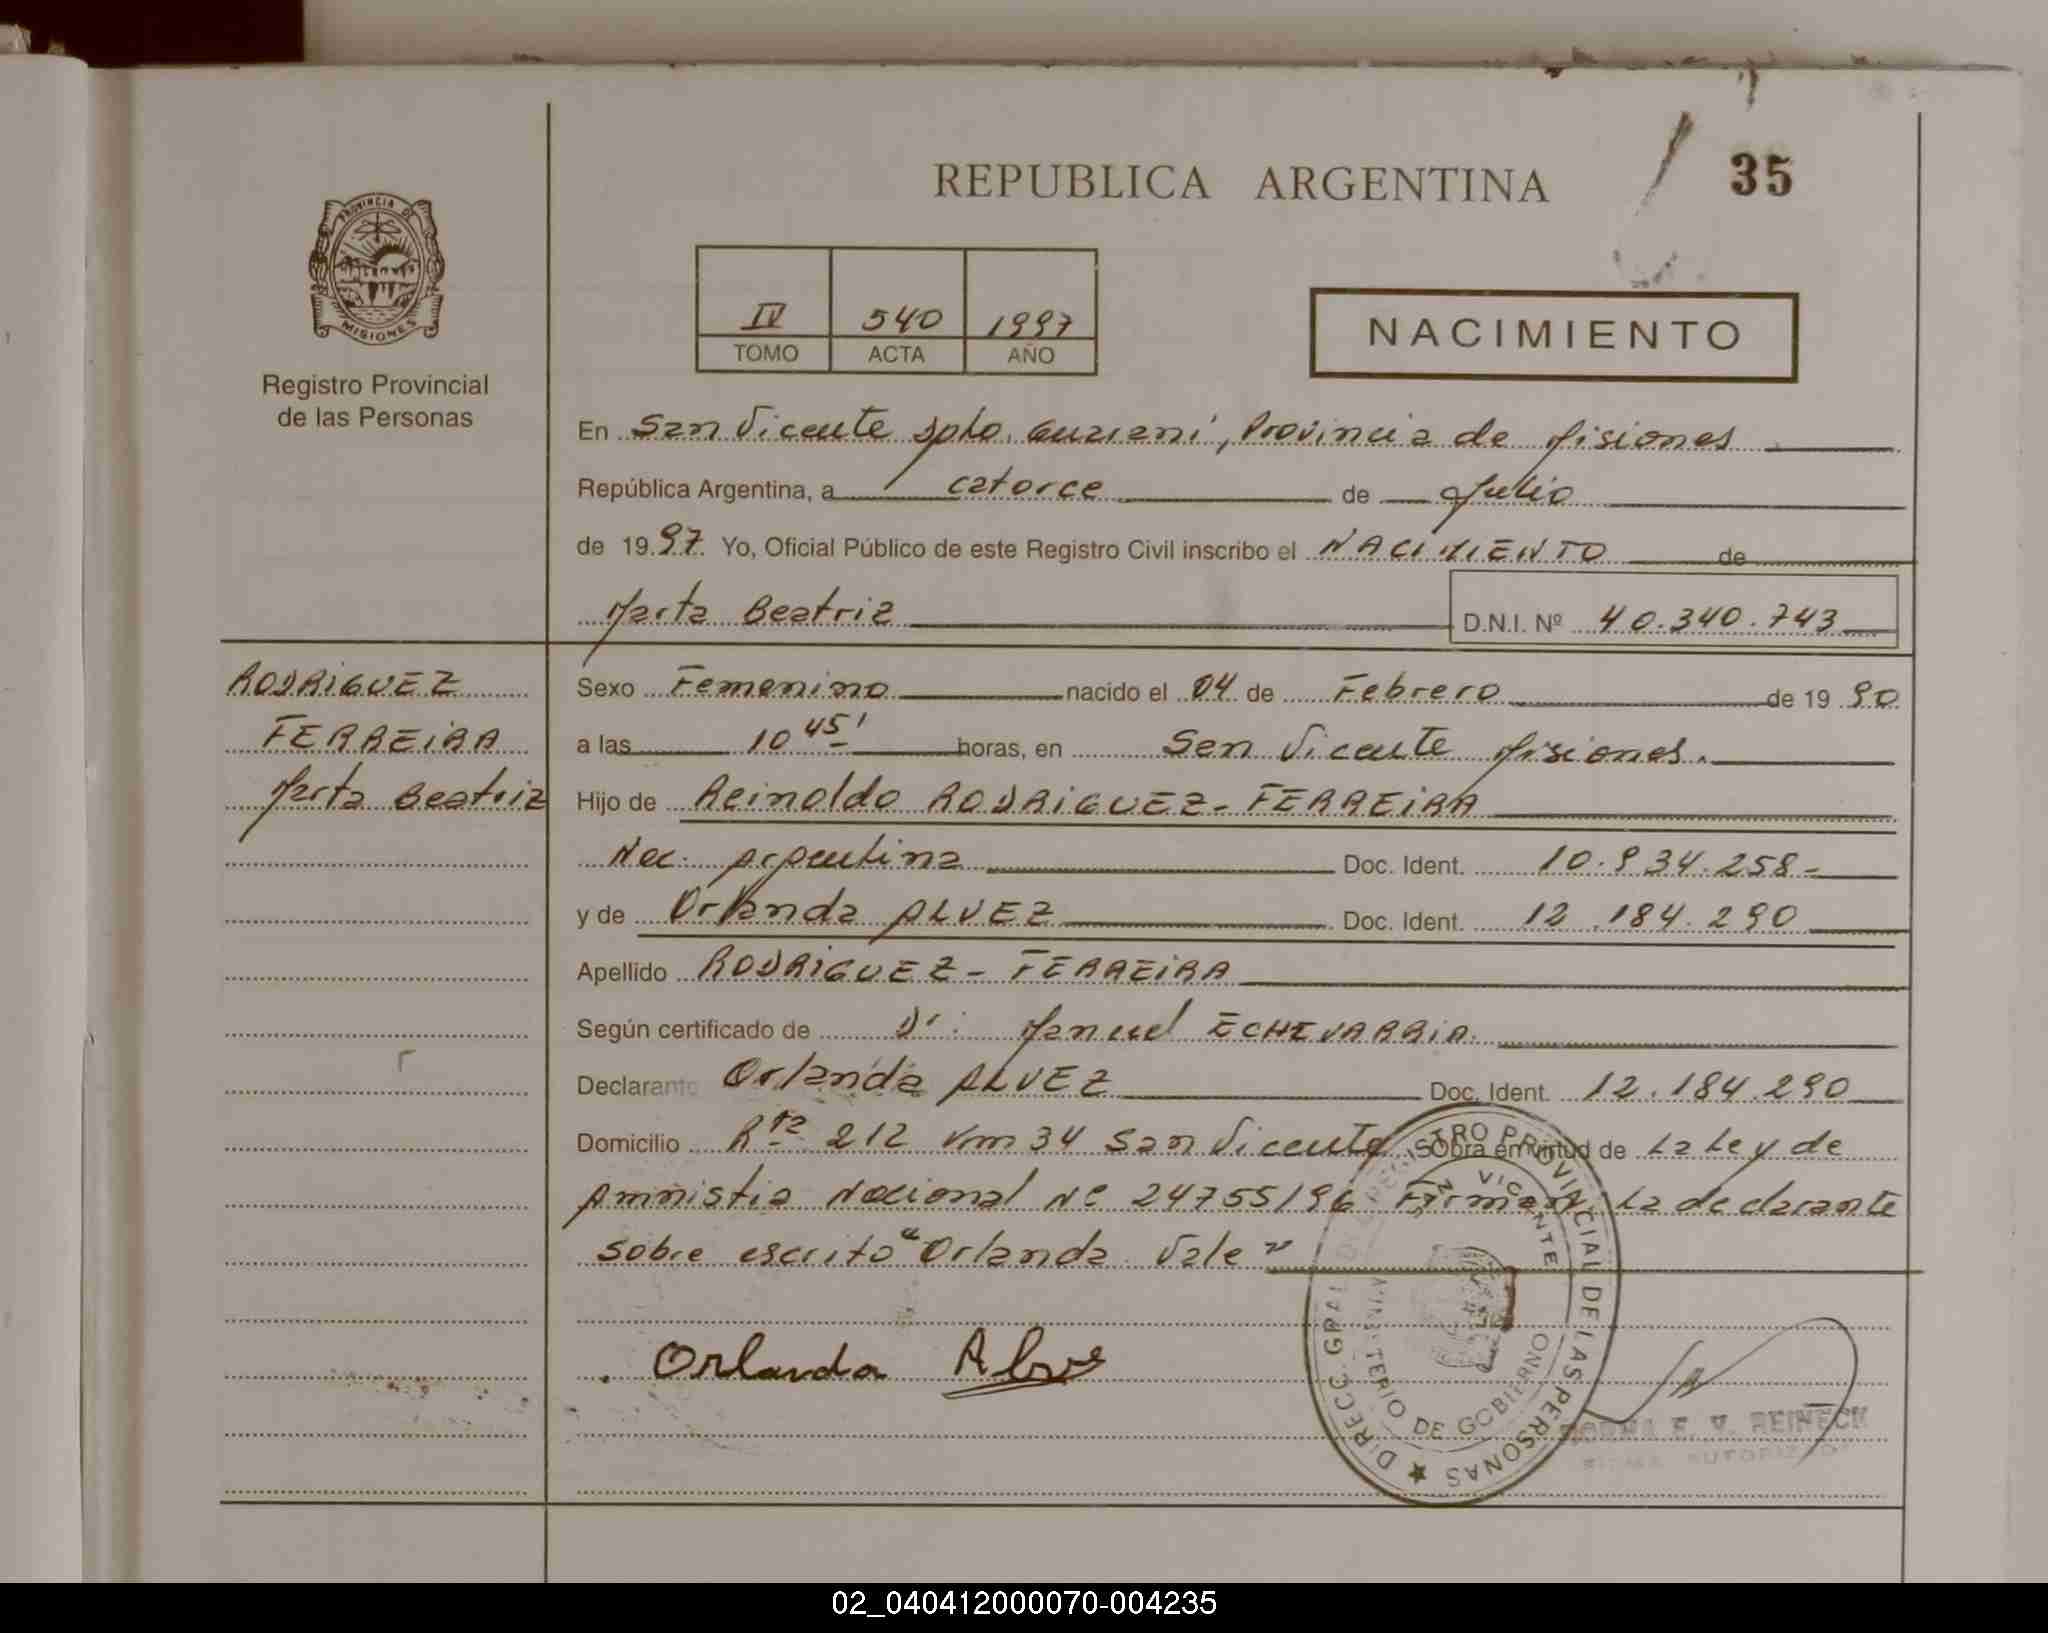 REPUBLICA ARGENTINA
35
PROVINCIA DE
MISIONES
Registro Provincial
de las Personas
IV 540 1997
TOMO ACTA AÑO
NACIMIENTO
En San Vicente Dpto. Guarani, Provincia de Misiones
República Argentina, a catorce de Julio
de 1997. Yo, Oficial Público de este Registro Civil inscribo el NACIMIENTO de
Marta Beatriz D.N.I. Nº 40.340.743
RODRIGUEZ
FERREIRA
Marta Beatriz
Sexo Femenino nacido el 04 de Febrero de 1990
a las 10 45' horas, en San Vicente Misiones.
Hijo de Reinoldo RODRIGUEZ-FERREIRA
Nac. Argentina Doc. Ident. 10.934.258-
y de Orlanda ALVEZ Doc. Ident. 12.184.290
Apellido RODRIGUEZ-FERREIRA
Según certificado de Dr. Manuel ECHEVARRIA.
Declarante Orlanda ALVEZ Doc. Ident. 12.184.290
Domicilio Rta 212 Km 34 San Vicente Obra en virtud de La Ley de
Amnistia Nacional Nº 24755/96 Firman La declarante
sobre escrito "Orlanda Vale"
Orlanda Alves
DIRECC. GRAL. DEL REGISTRO PROVINCIAL DE LAS PERSONAS
SAN VICENTE
MINISTERIO DE GOBIERNO
E. V. REINECK
FIRMA AUTORIZADA
02_040412000070-004235